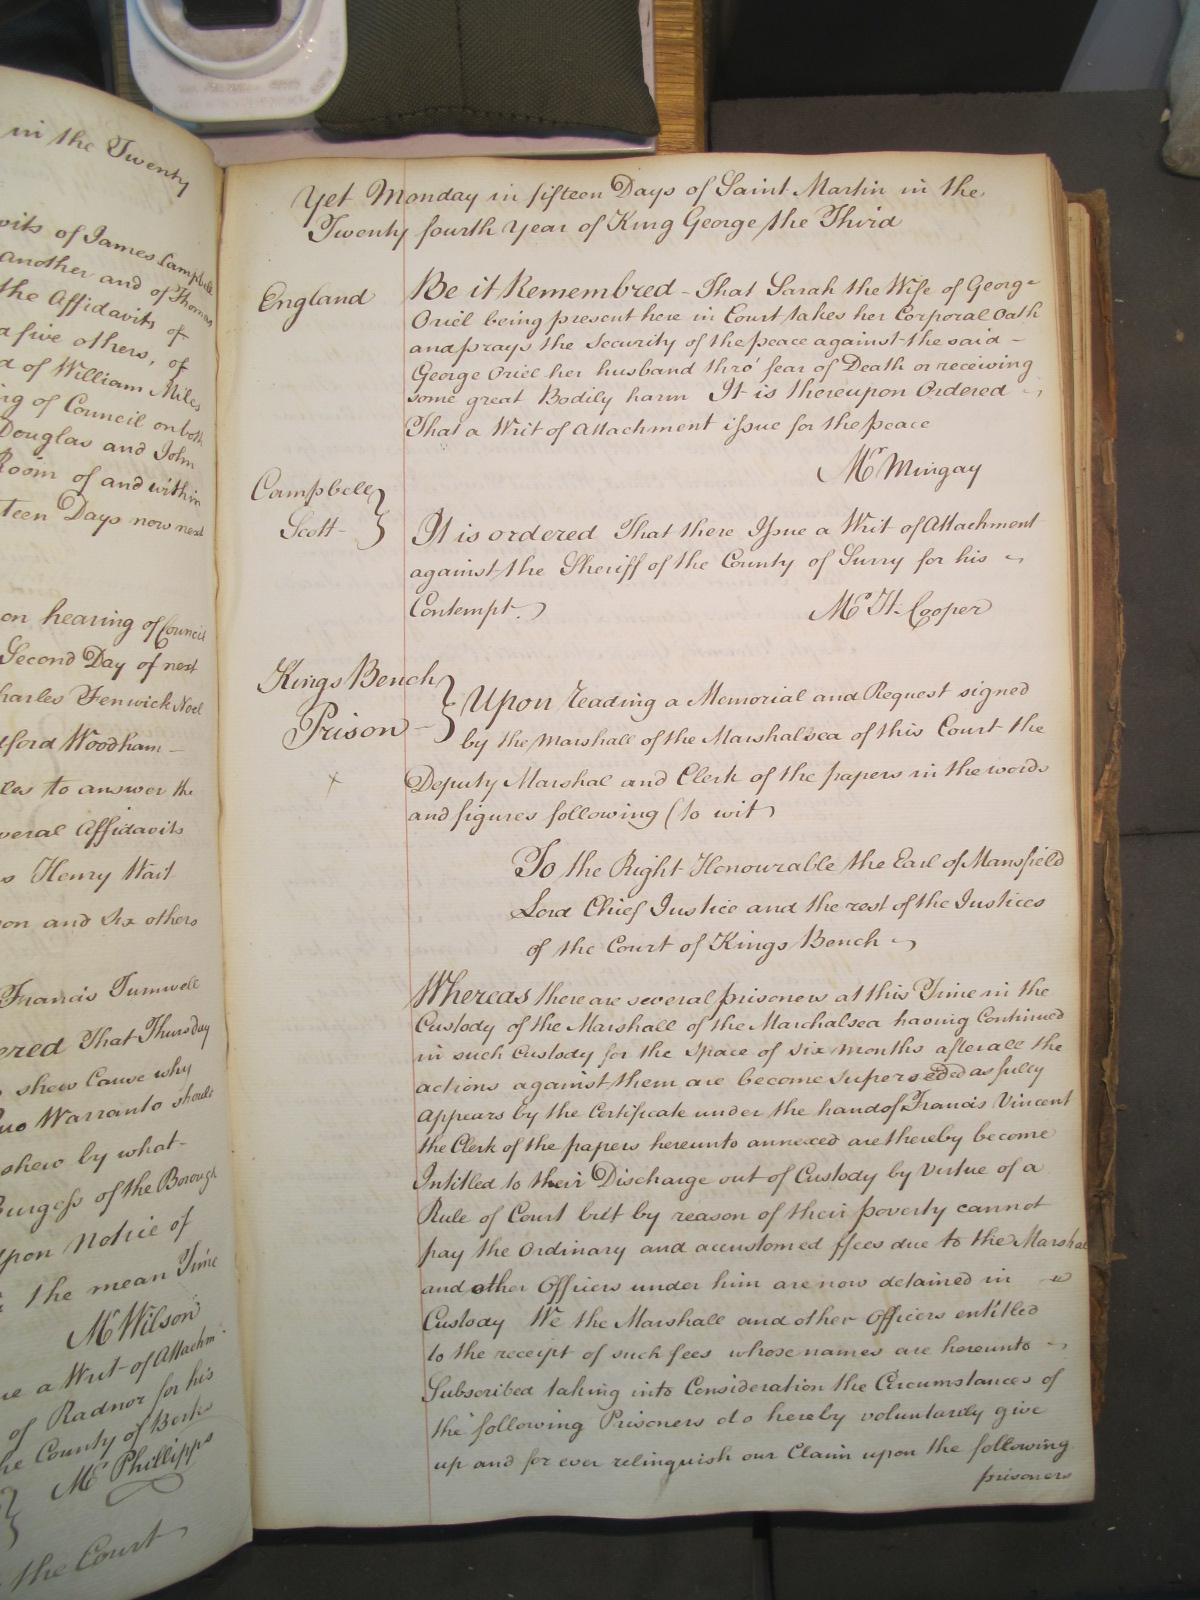 in the Twenty
vits of James Campbell
another and of Thomas
the Affidavits of
d five others, of
d of William Miles
ng of Council on both
Douglas and John
Room of and within
teen Days now next
on hearing of Council
Second Day of next
harles Fenwick Noel
dford Woodham —
les to answer the
veral Affidavits
s Henry Wait
on and Six others
Francis Tumwell
ered That Thursday
shew Cause why
uo Warranto should
shew by what
Burgess of the Borough
upon Notice of
the mean Time
Mr Wilson
ue a Writ of Attachm
of Radnor for his
he County of Berks
Mr Phillipps
the Court
Yet Monday in fifteen Days of Saint Martin in the
Twenty fourth Year of King George the Third
England
Be it Remembred – That Sarah the Wife of George
Oriel being present here in Court takes her Corporal Oath
and prays the Security of the peace against the said –
George Oriel her husband thro' fear of Death or receiving
some great Bodily harm It is thereupon Ordered
That a Writ of Attachment issue for the peace
Mr Mingay
Campbell
Scott –
It is ordered That there Issue a Writ of Attachment
against the Sheriff of the County of Surry for his
Contempt.
Mr H. Cooper
Kings Bench
Prison –
x
Upon reading a Memorial and Request signed
by the Marshall of the Marshalsea of this Court the
Deputy Marshal and Clerk of the papers in the words
and figures following (to wit)
To the Right Honourable the Earl of Mansfield
Lord Chief Justice and the rest of the Justices
of the Court of Kings Bench
Whereas there are several prisoners at this Time in the
Custody of the Marshall of the Marchalsea having Continued
in such Custody for the Space of Six Months after all the
actions against them are become superseded as fully
appears by the Certificate under the hand of Francis Vincent
the Clerk of the papers hereunto annexed are thereby become
Intitled to their Discharge out of Custody by Virtue of a
Rule of Court but by reason of their poverty cannot
pay the Ordinary and accustomed ffees due to the Marshal
and other Officers under him are now detained in
Custody We the Marshall and other Officers entitled
to the receipt of such fees whose names are hereunto
Subscribed taking into Consideration the Circumstances of
the following Prisoners do hereby voluntarily give
up and for ever relinquish our Claim upon the following
prisoners